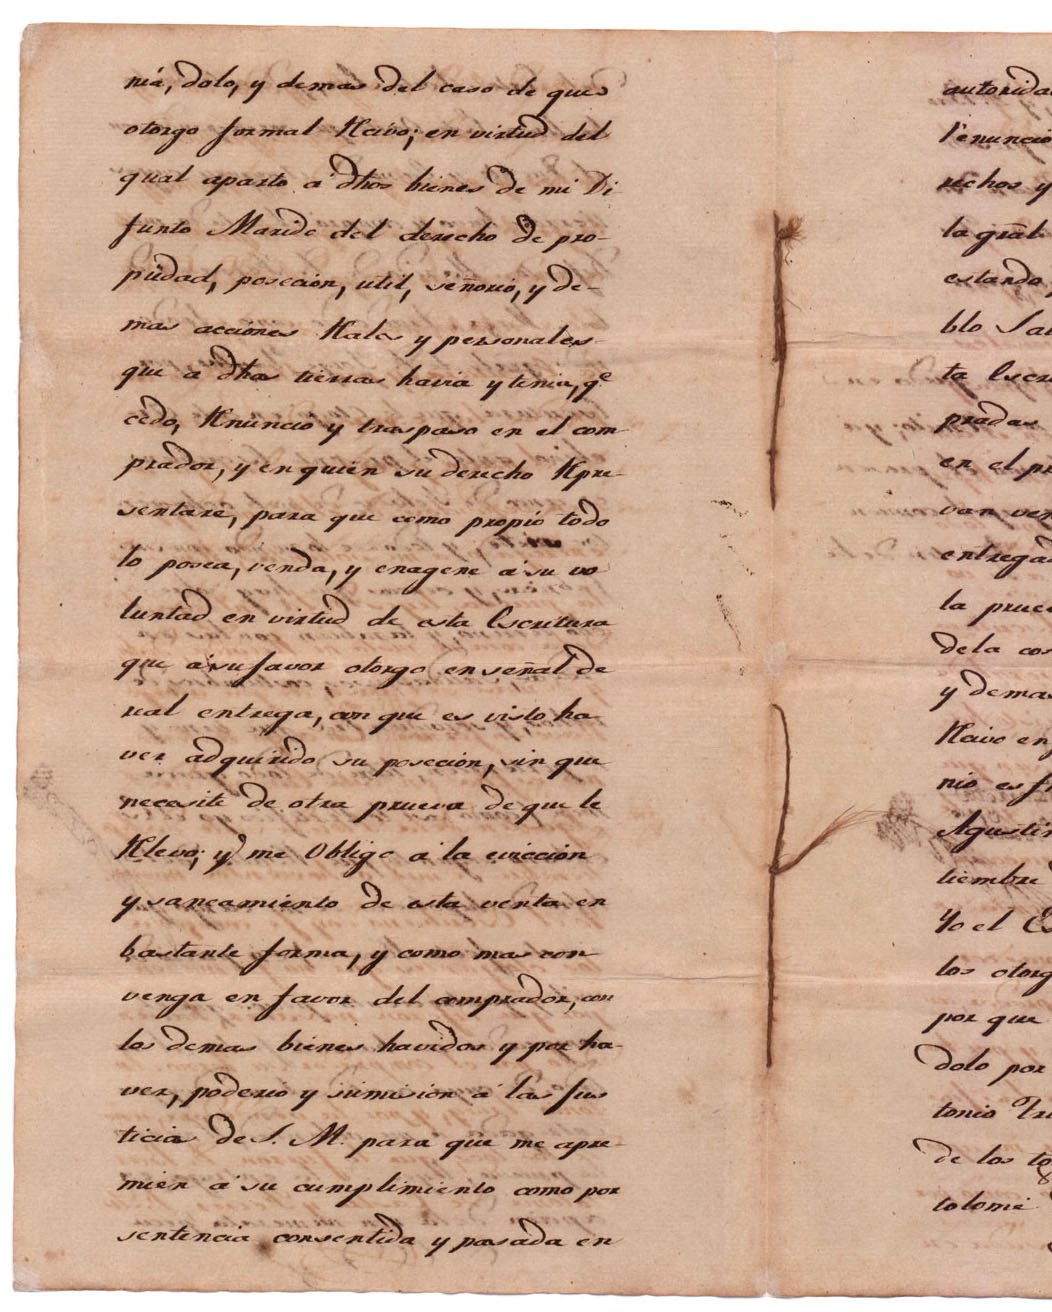 nia, dolo, y demas del caso de que
otorgo formal Rcivo; en virtud del
qual aparto a dhos bienes de mi Di
funto Marido del derecho de pro-
piedad, posecion, util, señorio, y de-
mas acciones Rales y personales
que a dhas tierras havia y tenia, qe
cedo, Rnuncio y traspaso en el com-
prador, y en quien su derecho Rpre-
sentare, para que como propio todo
lo posea, venda, y enagene a su vo
luntad en virtud de esta Escritura
que a su favor otorgo en señal de
real entrega, con que es visto ha-
ver adquirido su posecion, sin que
necesite de otra prueva de que le
Rlevo; y me Obligo a la eviccion
y saneamiento de esta venta en
bastante forma, y como mas con
venga en favor del comprador, con
los demas bienes havidos y por ha-
ver, poderio y sumision a las Jus
ticias de S. M. para que me apre-
mien a su cumplimiento como por
sentencia consentida y pasada en
autorida
Renuncio
rechos y
la gral.
estando
blo Sa
ta Escri
pradas
en el pr
van ver
entregad
la prue
dela cos
y demas
Rcivo en
nio es f
Agustin
tiembre
Yo el Es
los otorg
por que
dolo por
tonio Tru
de los to
tolome